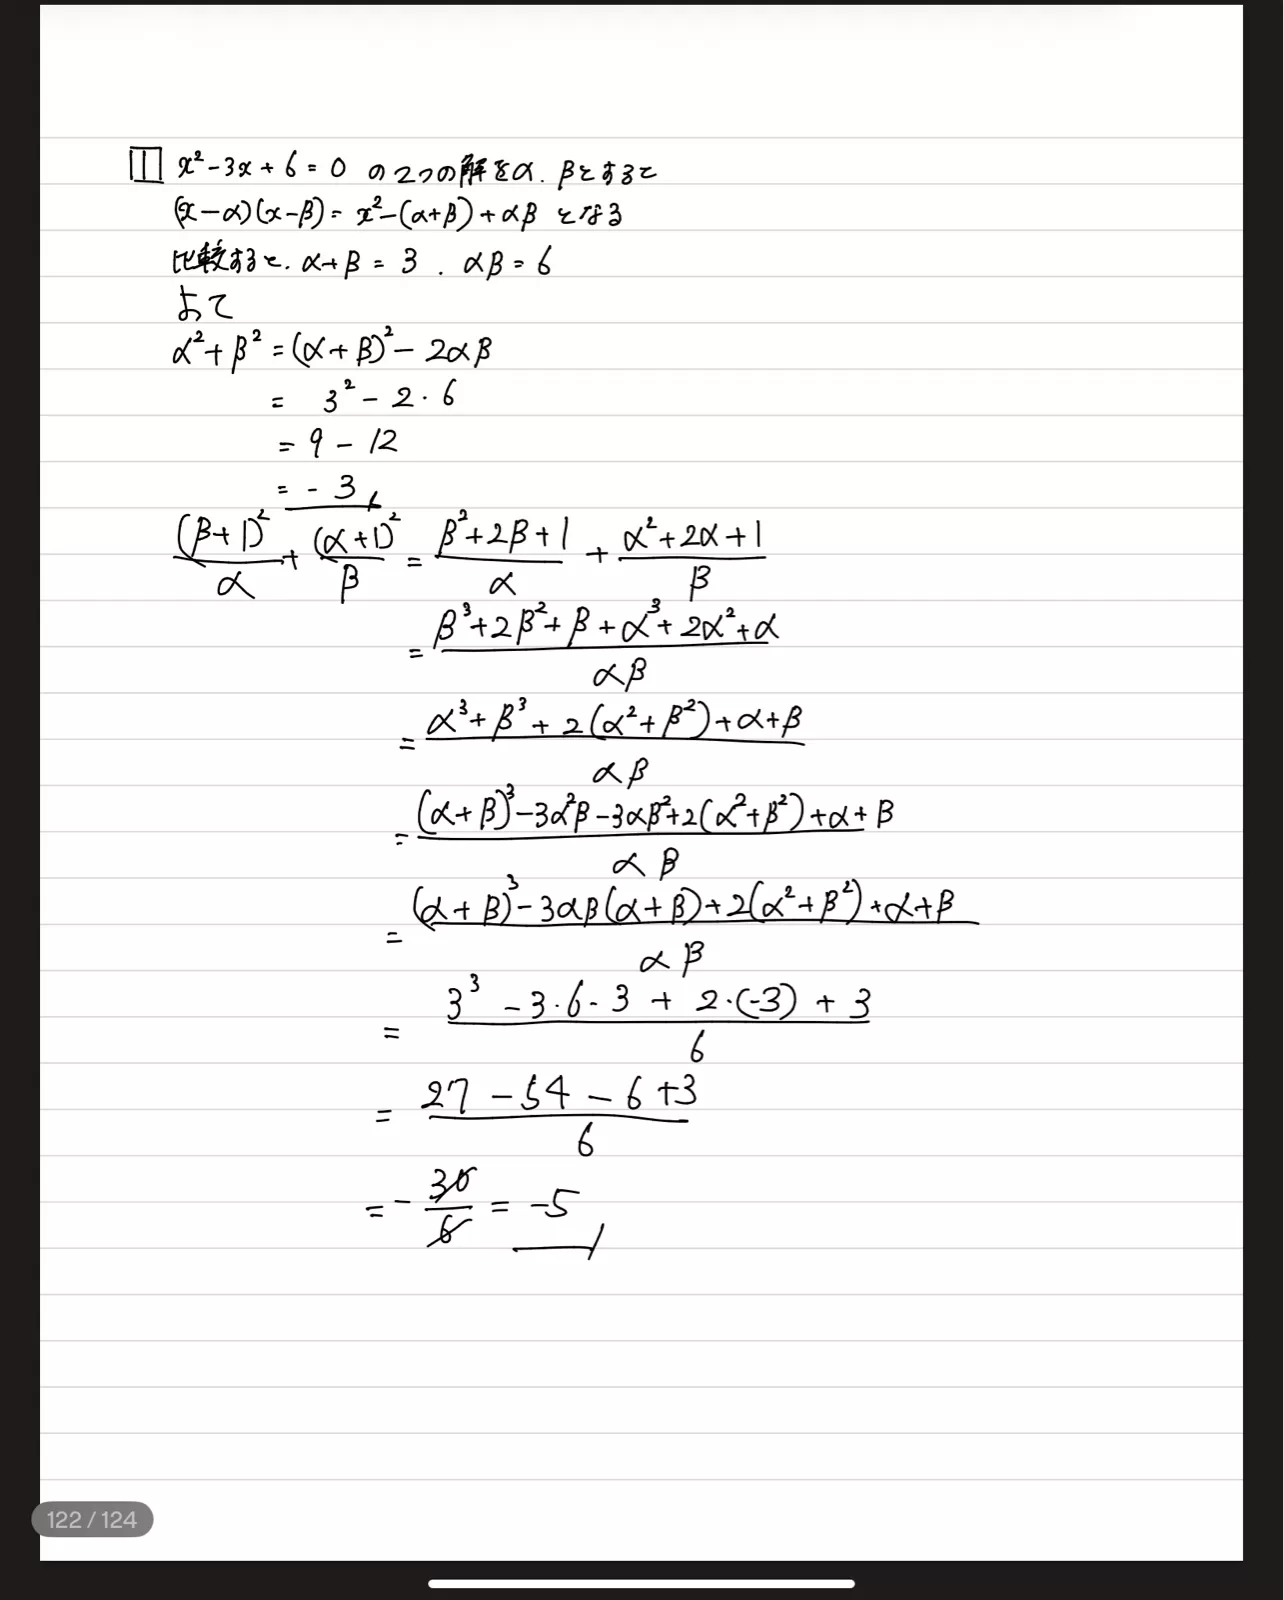 1 x²-3x+6=0 の2つの解をα.βとすると
(x-α)(x-β)=x²-(α+β)+αβ となる
比較すると.α+β=3.αβ=6
よって
α²+β²=(α+β)²-2αβ
=3²-2·6
=9-12
=-3
(β+1)²/α+(α+1)²/β=(β²+2β+1)/α+(α²+2α+1)/β
=(β³+2β²+β+α³+2α²+α)/αβ
=(α³+β³+2(α²+β²)+α+β)/αβ
=((α+β)³-3α²β-3αβ²+2(α²+β²)+α+β)/αβ
=((α+β)³-3αβ(α+β)+2(α²+β²)+α+β)/αβ
=(3³-3·6·3+2·(-3)+3)/6
=(27-54-6+3)/6
=-30/6=-5
122 / 124